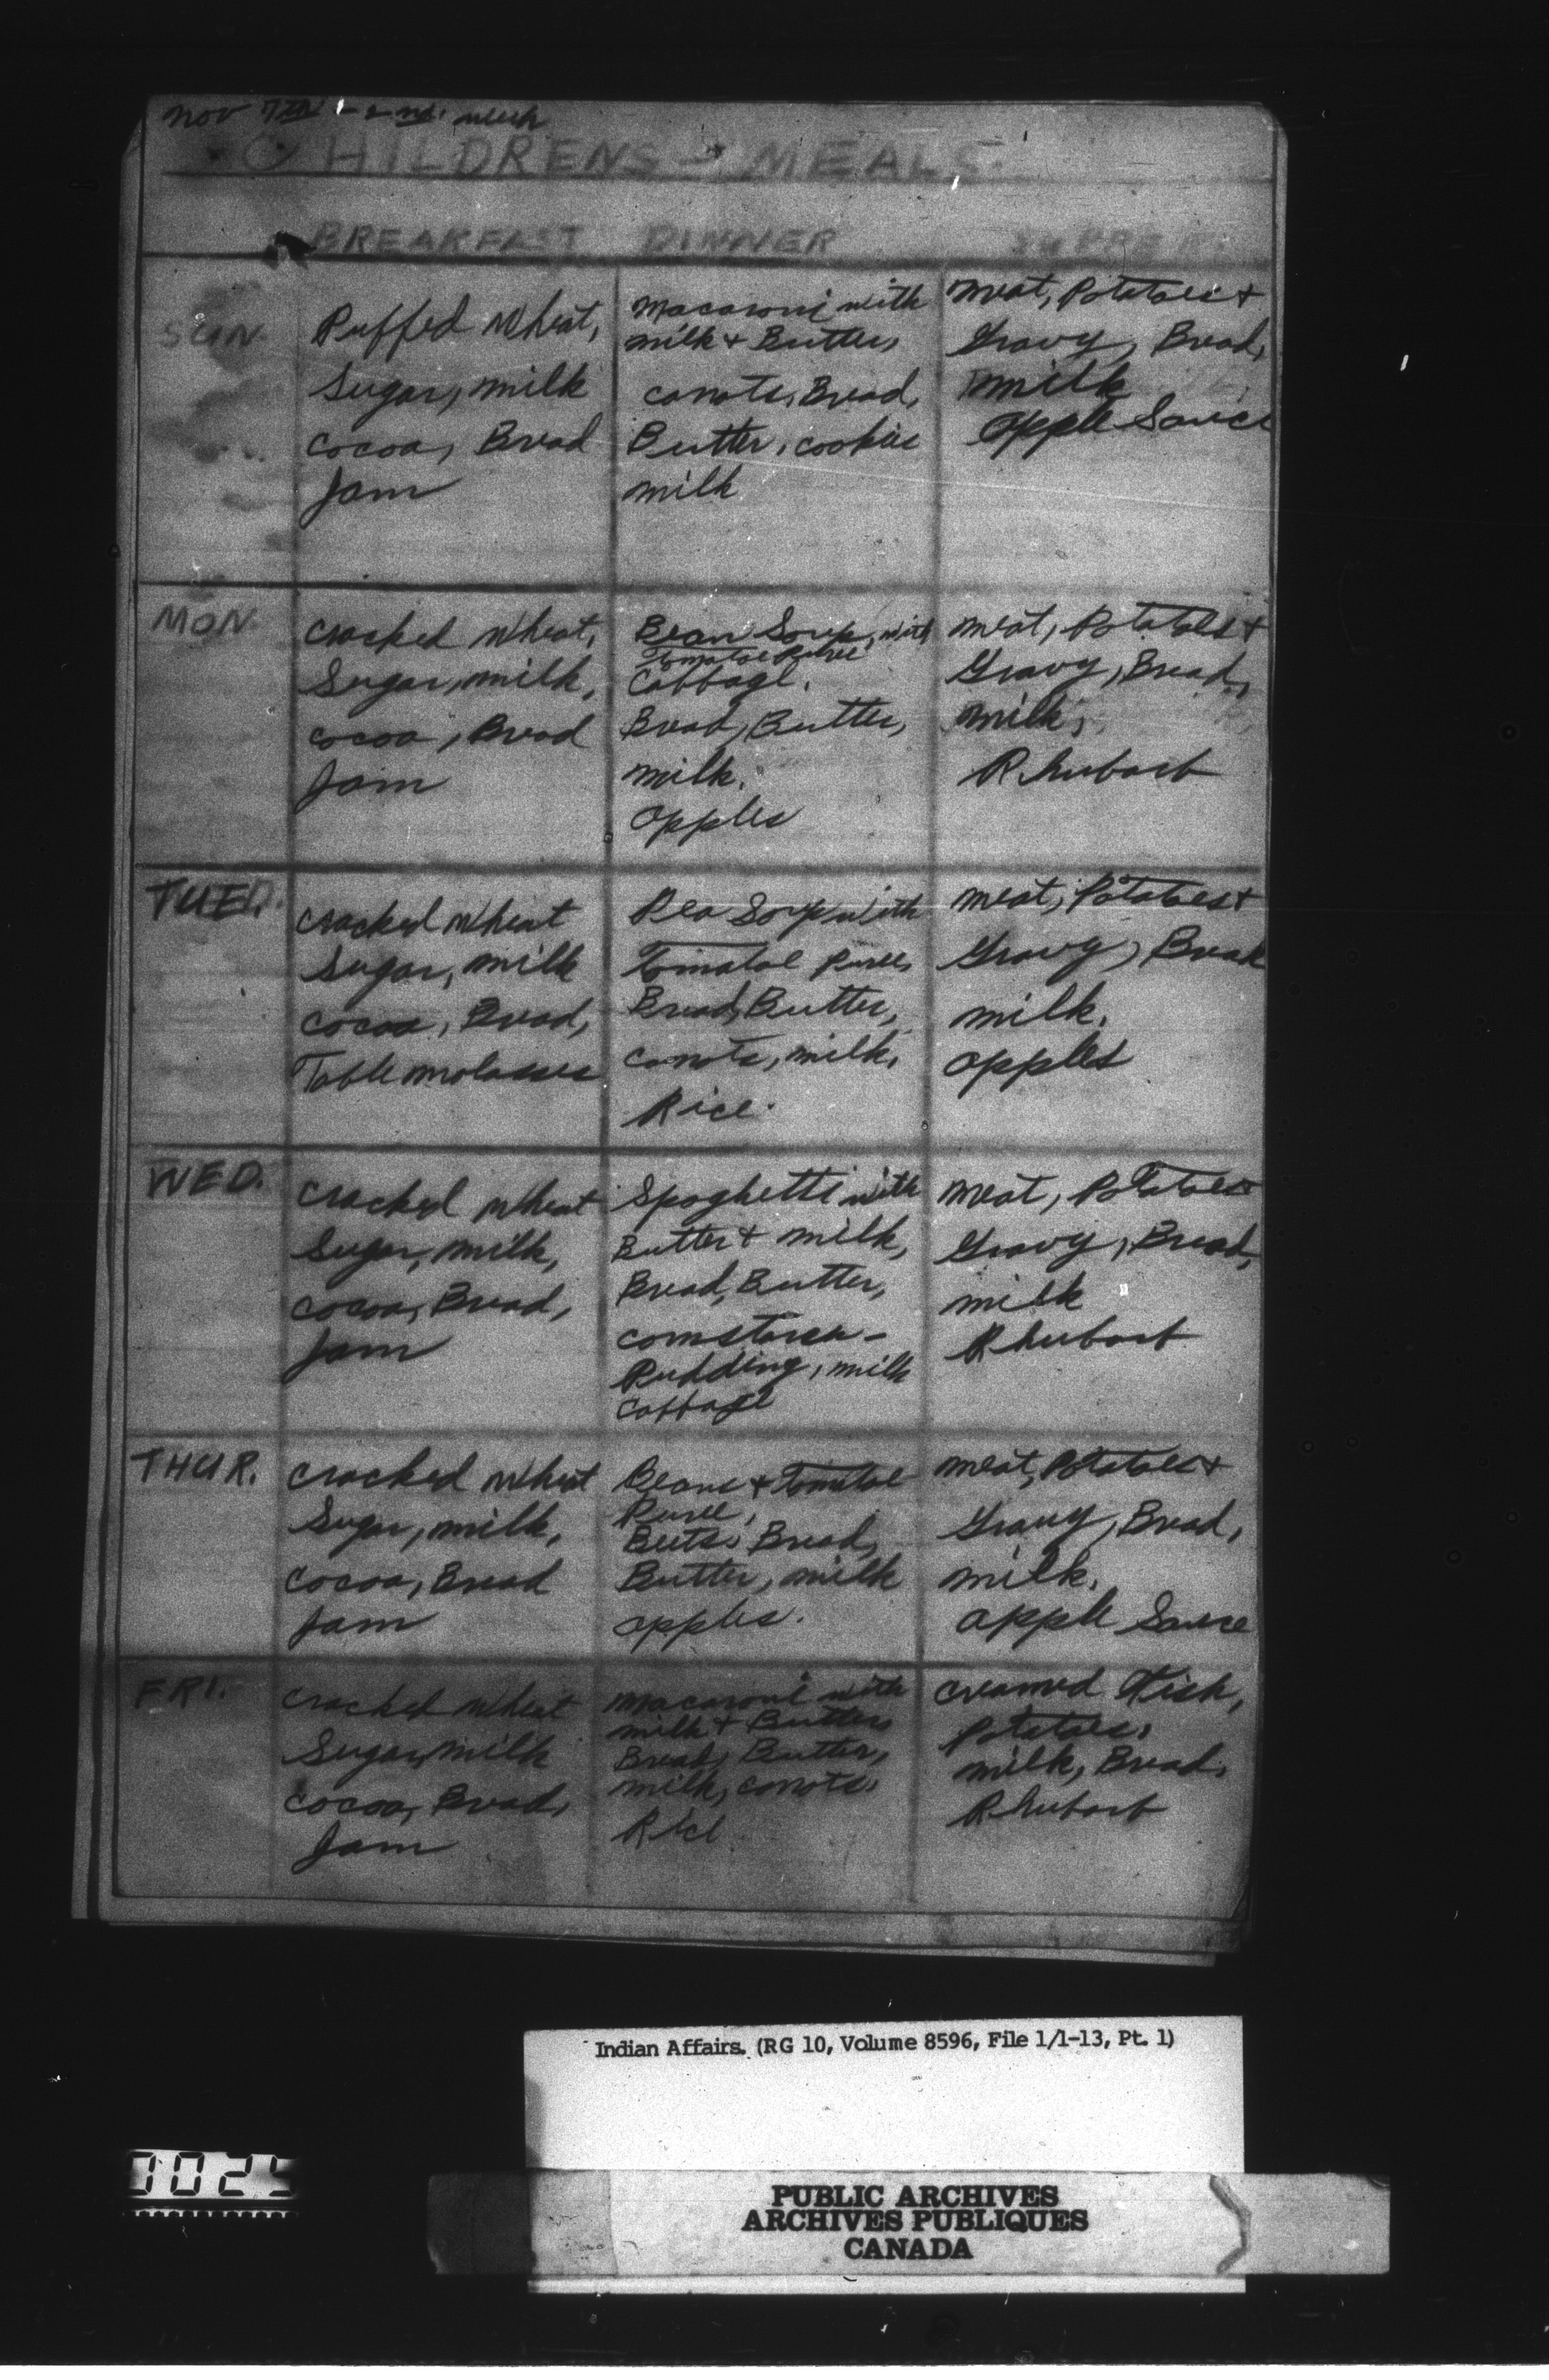 Nov 7th - 2nd. week
CHILDRENS - MEALS.
BREAKFAST DINNER SUPPER
SUN.
Puffed Wheat,
Sugar, milk
cocoa, Bread
Jam
Macaroni with
milk + Butter,
carrots, Bread,
Butter, cookies
milk
Meat, Potatoes +
Gravy, Bread,
milk
apple Sauce
MON.
cracked wheat,
Sugar, milk,
cocoa, Bread
Jam
Bean Soup, with
Tomatoe Puree
Cabbage.
Bread, Butter,
milk.
apples
Meat, Potatoes +
Gravy, Bread,
milk,
Rhubarb
TUED.
cracked wheat
Sugar, milk
cocoa, Bread,
Table molasses
Pea Soup with
Tomatoe Puree,
Bread, Butter,
carrots, milk,
Rice.
Meat, Potatoes +
Gravy, Bread
milk.
apples
WED.
cracked wheat
Sugar, milk,
cocoa, Bread,
Jam
Spaghetti with
Butter + milk,
Bread, Butter,
cornstarch -
Pudding, milk
Cabbage
Meat, Potatoes
Gravy, Bread,
milk
Rhubarb
THUR.
cracked wheat
Sugar, milk,
cocoa, Bread
Jam
Beans + Tomatoe
Puree,
Beets, Bread,
Butter, milk
apples.
Meat, Potatoes +
Gravy, Bread,
milk.
apple Sauce
FRI.
cracked wheat
Sugar, milk
cocoa, Bread,
Jam
Macaroni with
milk + Butter,
Bread, Butter,
milk, carrots,
Rice
creamed Fish,
Potatoes,
milk, Bread,
Rhubarb
Indian Affairs. (RG 10, Volume 8596, File 1/1-13, Pt. 1)
PUBLIC ARCHIVES
ARCHIVES PUBLIQUES
CANADA